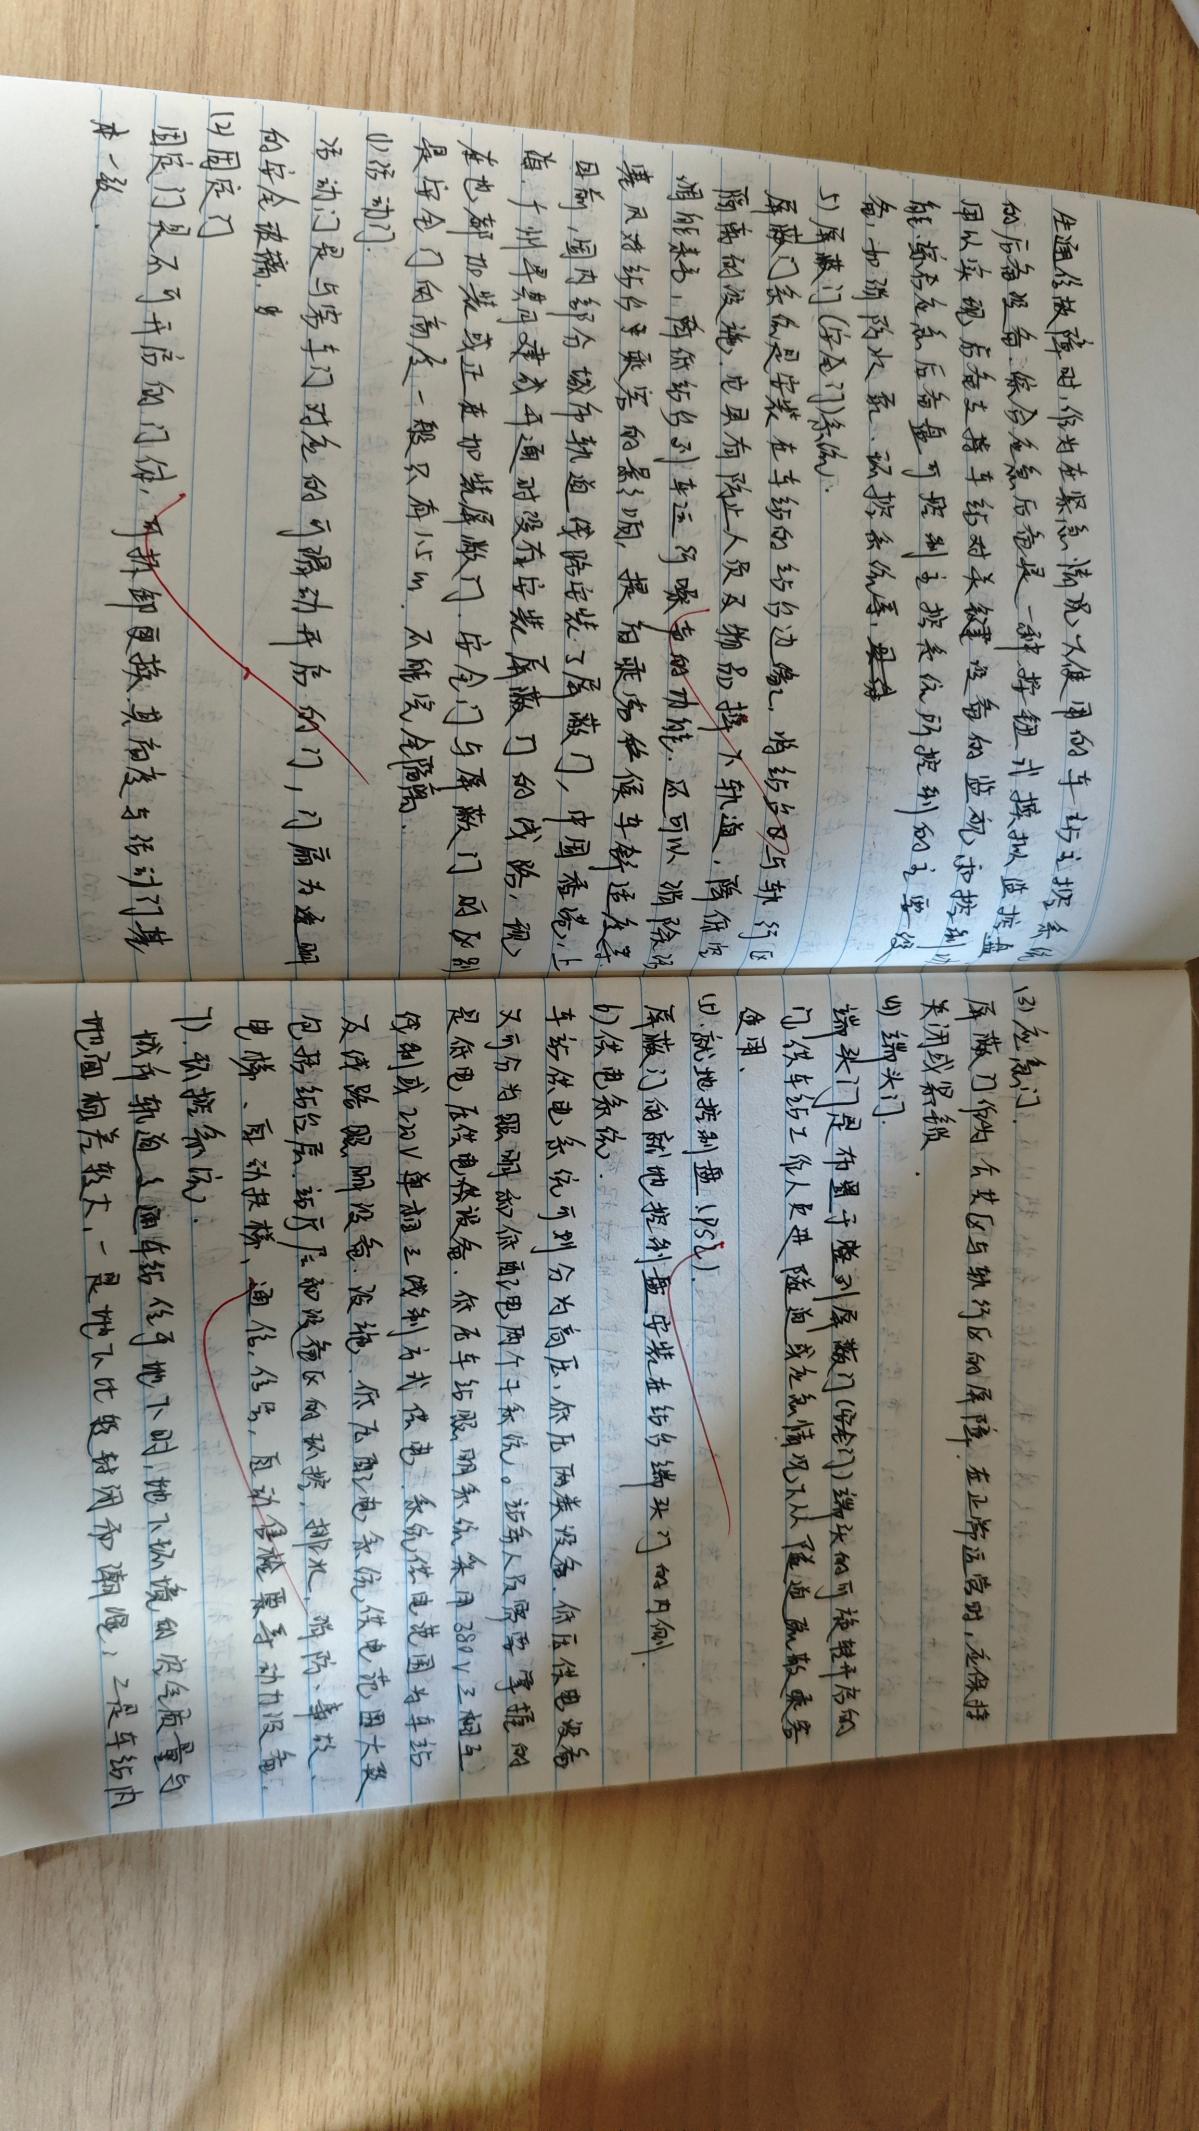 生通信故障时，作为在紧急情况下使用的车站主控系统
的后备设备。综合应急后备盘是一种按钮式模拟监控盘
用以实现后备支持车站对关键设备的监视和控制功
能。综合应急后备盘可控制主控系统所控制的主要设
备，如消防水泵、环控系统等。
5）屏蔽门（安全门）系统.
屏蔽门系统是安装在车站的站台边缘，将站台区与轨行区
隔离的设施。它具有防止人员及物品掉下轨道，降低空
调能耗，降低站台列车运行噪音的功能。还可以消除活
塞风对站台乘客的影响，提高乘客候车舒适度等
目前，国内部分城市轨道线路安装了屏蔽门，中国香港、上
海、广州早其间建成开通时没有安装屏蔽门的线路，现
在也都加装或正在加装屏蔽门。安全门与屏蔽门的区别
是安全门的高度一般只有1.5m. 不能完全隔离.
(1)活动门.
活动门是与客车门对应的可滑动开启的门，门扇为透明
的安全玻璃.
(2)固定门
固定门是不可开启的门体，可拆卸更换.其高度与活动门基
本一致.
(3)应急门.
屏蔽门作为公共区与轨行区的屏障.在正常运营时，应保持
关闭或累锁.
(4)端头门.
端头门是布置于整列屏蔽门(安全门)端头的可旋转开启的
门.供车站工作人员进隧道或应急情况下从隧道疏散乘客
使用.
(5).就地控制盘(PSL).
屏蔽门的就地控制盘安装在站台端头门的内侧.
6)供电系统.
车站供电系统可划分为高压，低压两类设备.低压供电设备
又可分为照明和低配电两个子系统。站务人员需要掌握的
是低电压供电设备.低压车站照明系统采用380V三相五
线制或220V单相三线制方式供电.系统供电范围为车站
及线路照明设备、设施.低压配电系统供电范围大致
包括站台层、站厅层和设备区的环控，排水、消防、事故、
电梯、自动扶梯、通信、信号，自动售检票等动力设备.
7).环控系统.
城市轨道交通车站位于地下时，地下环境的空气质量与
地面相差较大，一是地下比较封闭和潮湿；2是车站内